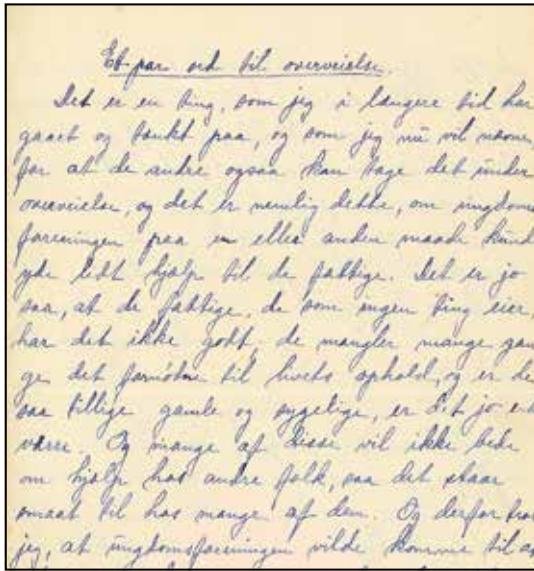 Et par ord til overveielse.
Det er en ting, som jeg i længere tid har
gaaet og tænkt paa, og som jeg nu vil nævne,
for at de andre ogsaa kan tage det under
overveielse, og det er nemlig dette, om ungdoms
foreningen paa en eller anden maade kund
yde lidt hjælp til de fattige. Det er jo
saa, at de fattige, de som ingen ting eier,
har det ikke godt, de mangler mange gan
ge det fornødne til livets ophold, og er de
saa tillige gamle og sygelige, er det jo end
værre. Og mange af disse vil ikke bede
om hjælp hos andre folk, saa det staar
smaat til hos mange af dem. Og derfor tror
jeg, at ungdomsforeningen vilde komme til at